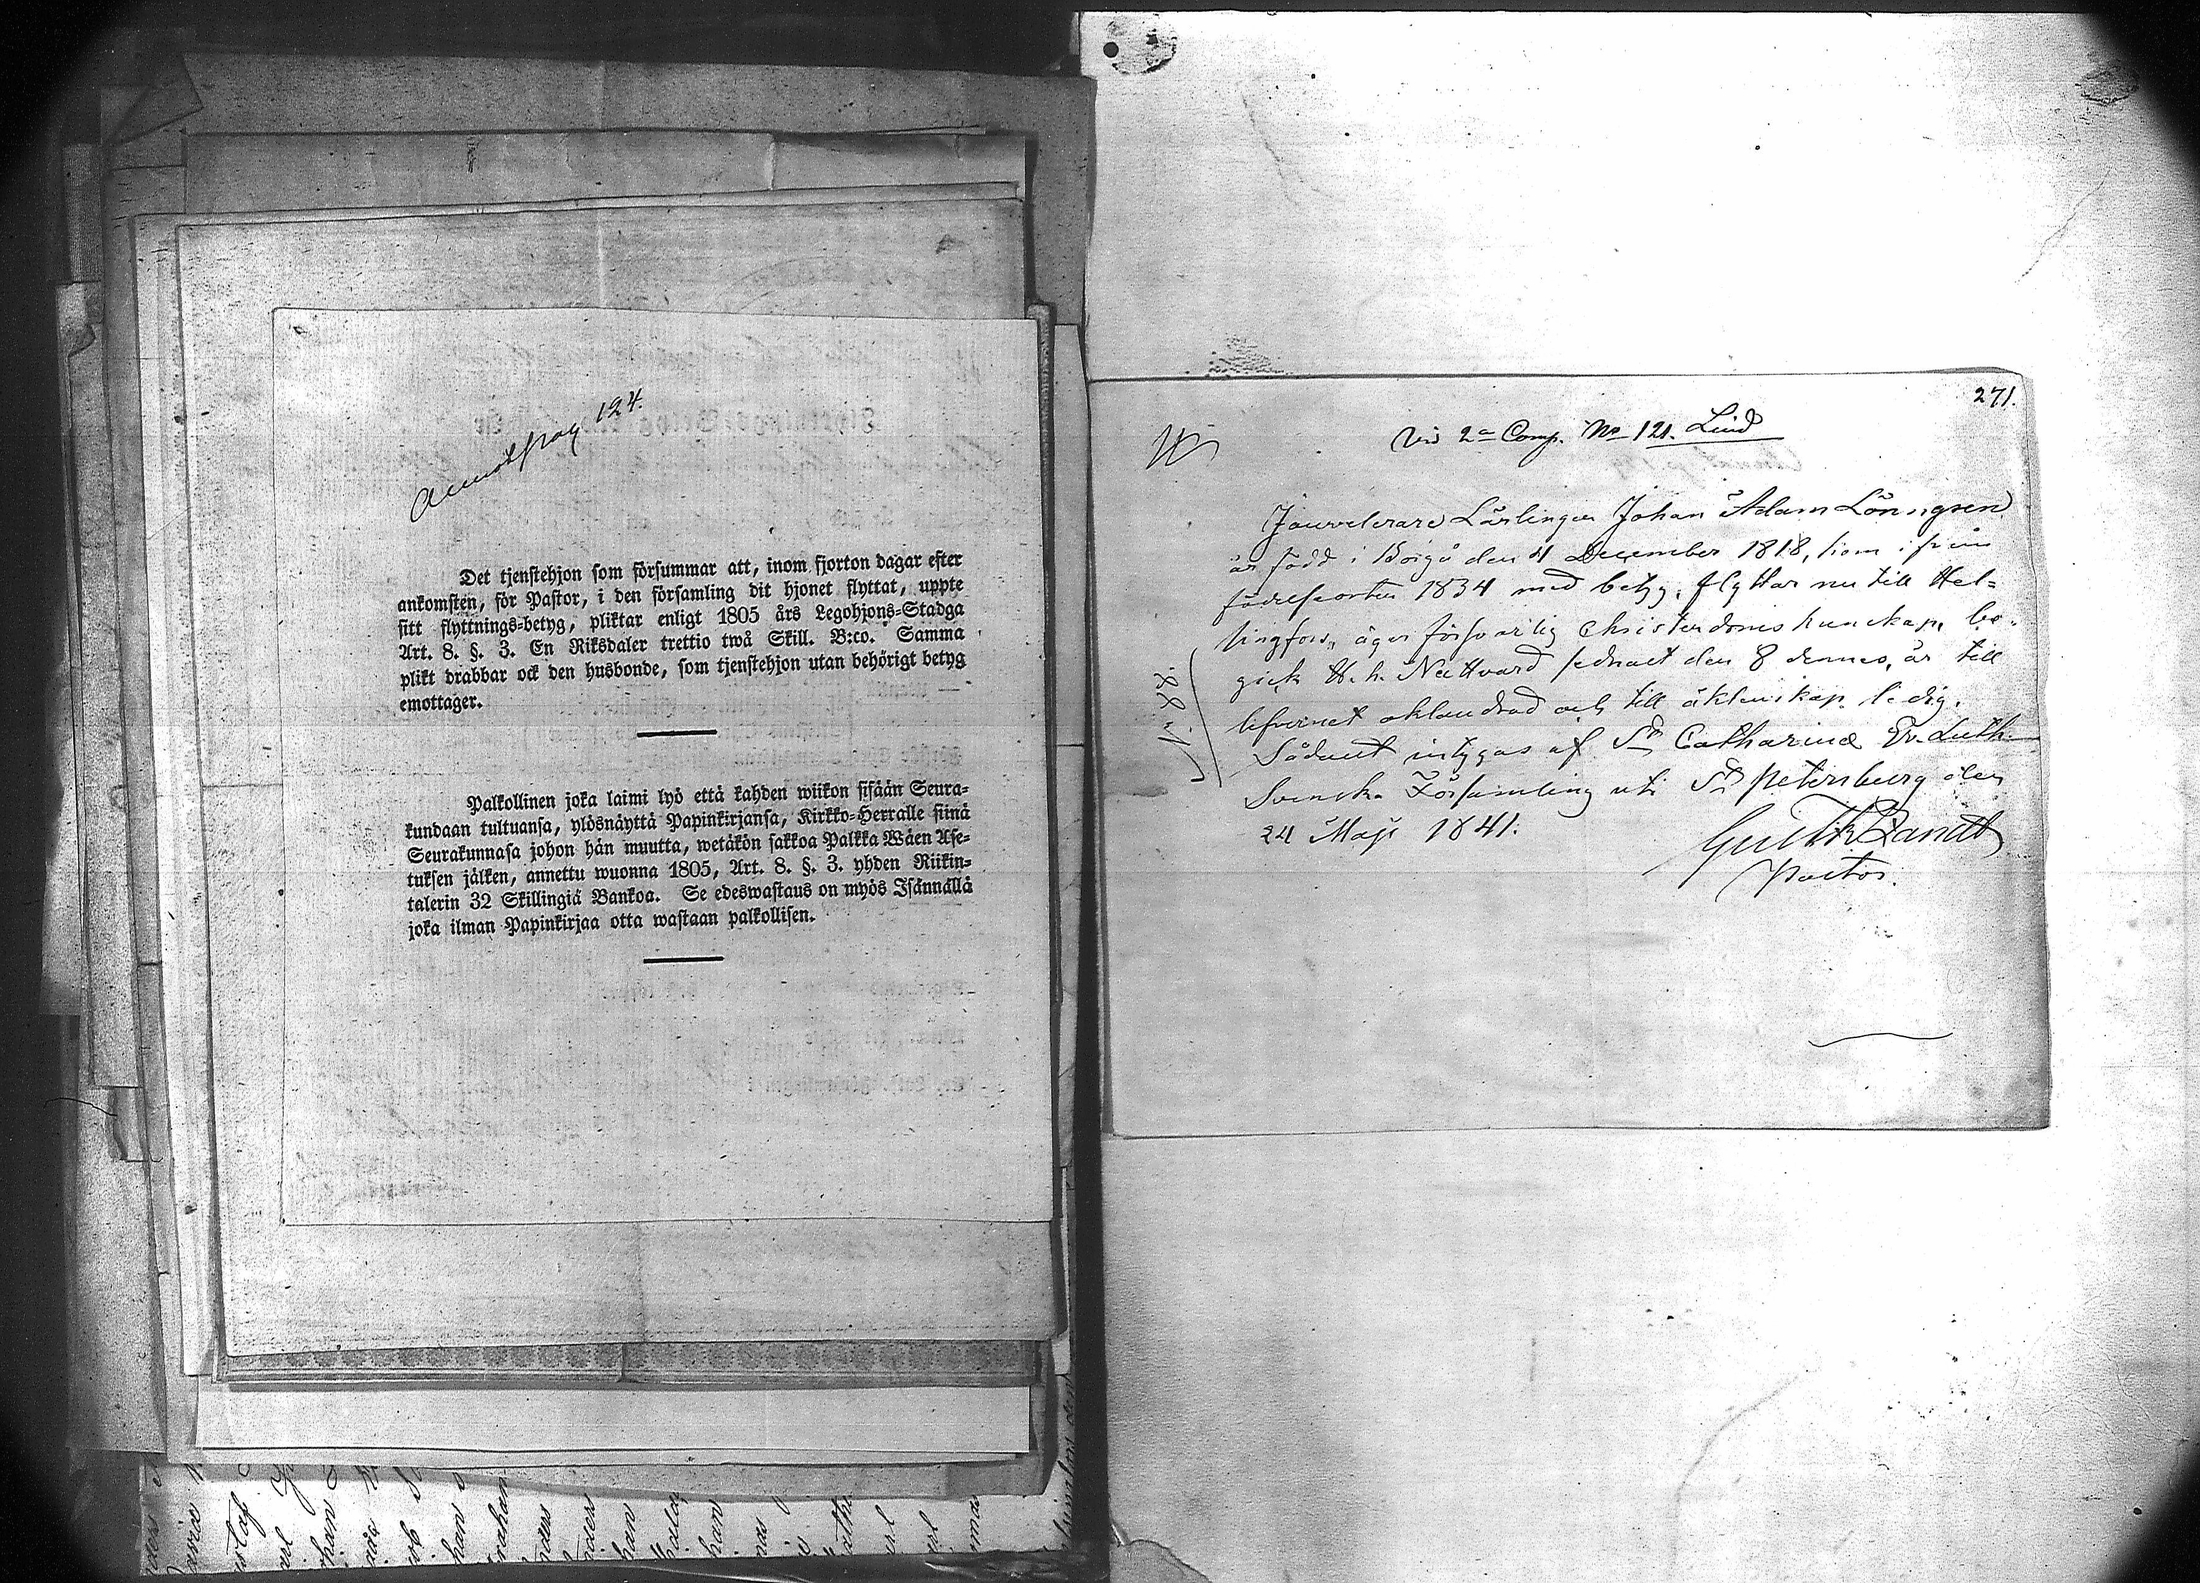 124.
Det tjenstehjon som försummar att, inom fjorton dagar efter
ankomsten, för Pastor, i den församling dit hjonet flyttat, uppte
sitt flyttnings-betyg, pliktar enligt 1805 års Legohjons-Stadga
Art. 8. §. 3. En Riksdaler trettio twå Skill. B:co. Samma
plikt drabbar ock den husbonde, som tjenstehjon utan behörigt betyg
emottager.
Palkollinen joka laimi lyö että kahden wiikon sisään Seura-
kundaan tultuansa, ylösnäyttä Papinkirjansa, Kirkko-Herralle siinä
Seurakunnasa johon hän muutta, wetäkön sakkoa Palkka Wäen Ase-
tuksen jälken, annettu wuonna 1805, Art. 8. §. 3. yhden Riikin-
talerin 32 Skillingiä Bankoa. Se edeswastaus on myös Isännällä
joka ilman Papinkirjaa otta wastaan palkollisen.
271.
Wid 2a Comp. No 121. Lind
Jouvelerare Lärlingen Johan Adam Lönngren
är född i Borgå den 4 December 1818, kom ifrån
födelseorten 1834 med betyg, flyttar nu till Hel-
singfors, äger försvarlig Christendomskunskap, be-
gick H. h. Nattvard sednast den 8 dennes, är till
lefvernet oklandrad och till äktenskap ledig.
Sådant intygas af St Catharinæ Ev. Luth.
Svenska Församling uti St Petersburg den
24 Maji 1841.
Pastor.